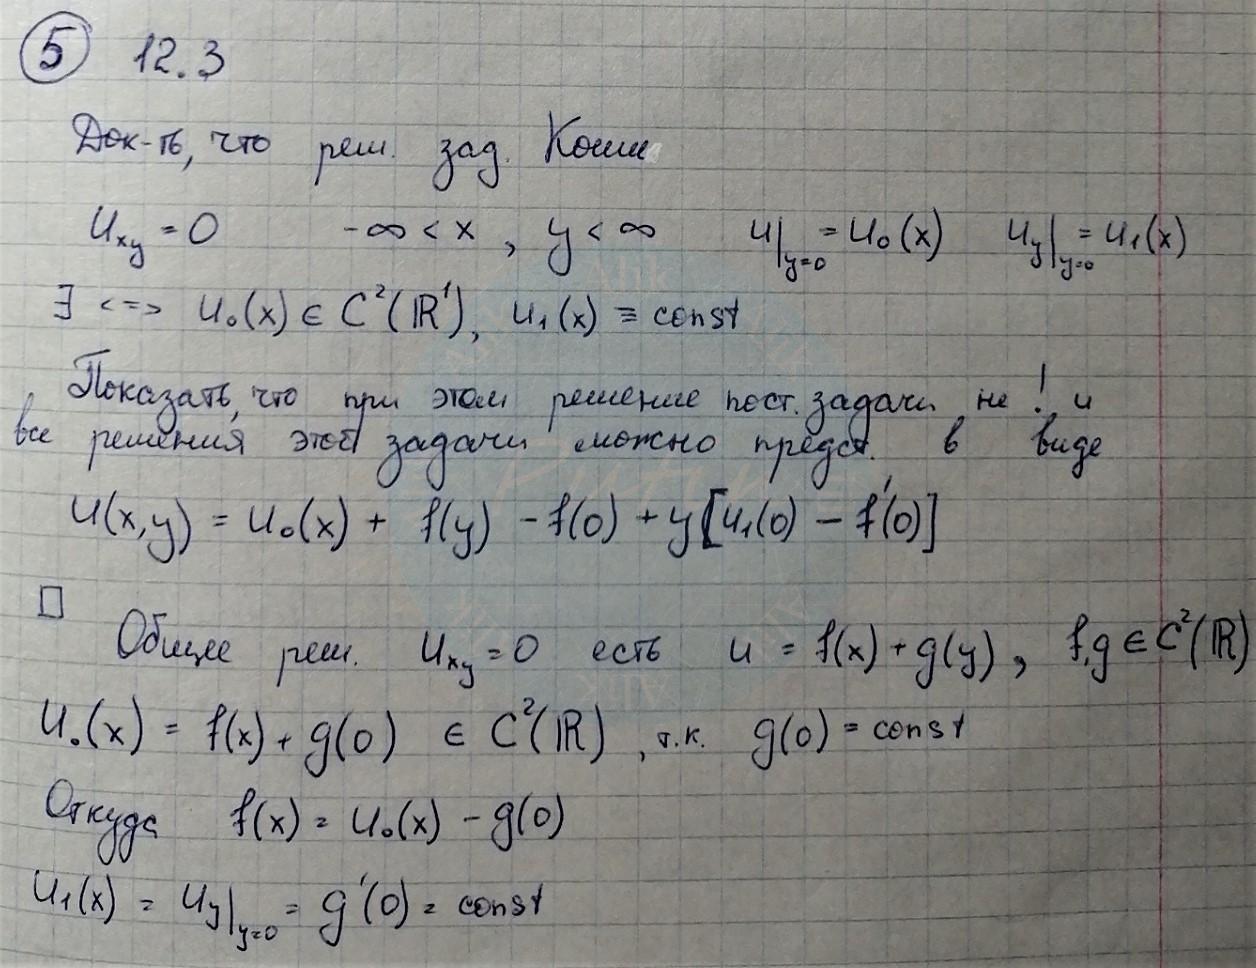 5 12.3
Док-ть, что реш. зад. Коши
u_xy = 0 -∞ < x, y < ∞ u|_y=0 = u₀(x) u_y|_y=0 = u₁(x)
∃ <=> u₀(x) ∈ C²(ℝ¹), u₁(x) ≡ const
Показать, что при этом решение пост. задачи не ! и
все решения этой задачи можно предст. в виде
u(x,y) = u₀(x) + f(y) - f(0) + y[u₁(0) - f'(0)]
□
Общее реш. u_xy = 0 есть u = f(x) + g(y), f,g ∈ C²(ℝ)
u₀(x) = f(x) + g(0) ∈ C²(ℝ), т.к. g(0) = const
Откуда f(x) = u₀(x) - g(0)
u₁(x) = u_y|_y=0 = g'(0) = const